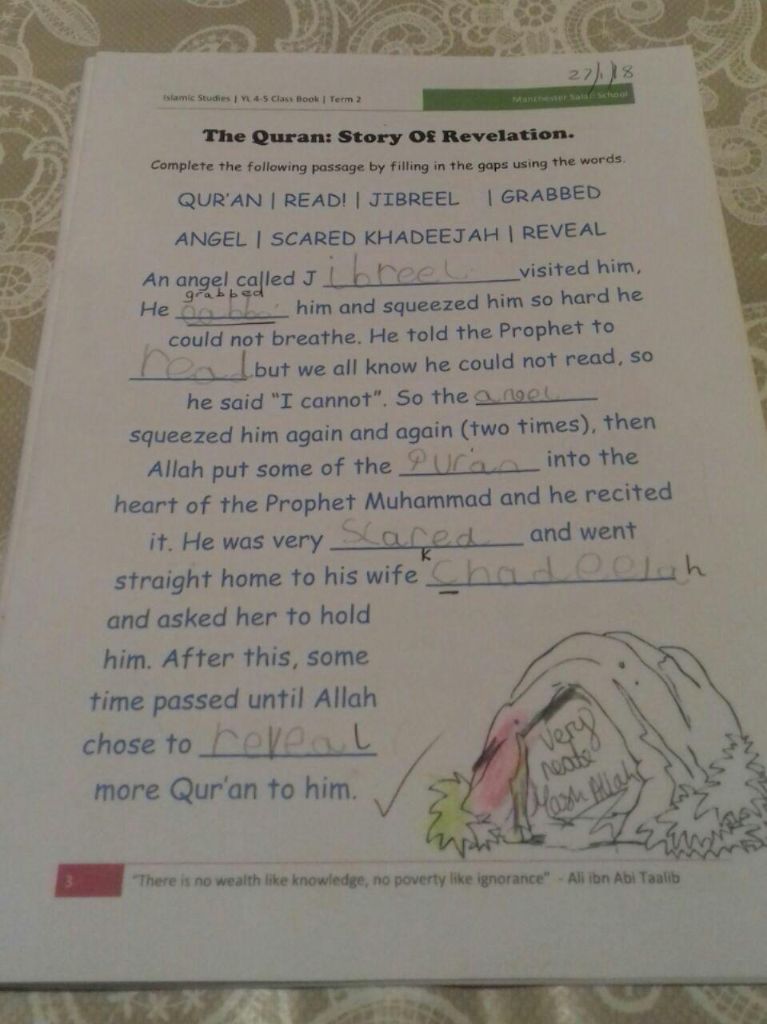 27/1/18
Islamic Studies | YL 4-5 Class Book | Term 2
Manchester Salafi School
The Quran: Story Of Revelation.
Complete the following passage by filling in the gaps using the words.
QUR'AN | READ! | JIBREEL | GRABBED
ANGEL | SCARED KHADEEJAH | REVEAL
An angel called J ibreel visited him,
grabbed
He him and squeezed him so hard he
could not breathe. He told the Prophet to
read but we all know he could not read, so
he said "I cannot". So the
squeezed him again and again (two times), then
Allah put some of the Qur'an into the
heart of the Prophet Muhammad and he recited
it. He was very Scared and went
K
straight home to his wife Chadeejah
and asked her to hold
him. After this, some
time passed until Allah
chose to reveal
more Qur'an to him.
Very
neate
Mash Allah
3
"There is no wealth like knowledge, no poverty like ignorance" - Ali ibn Abi Taalib